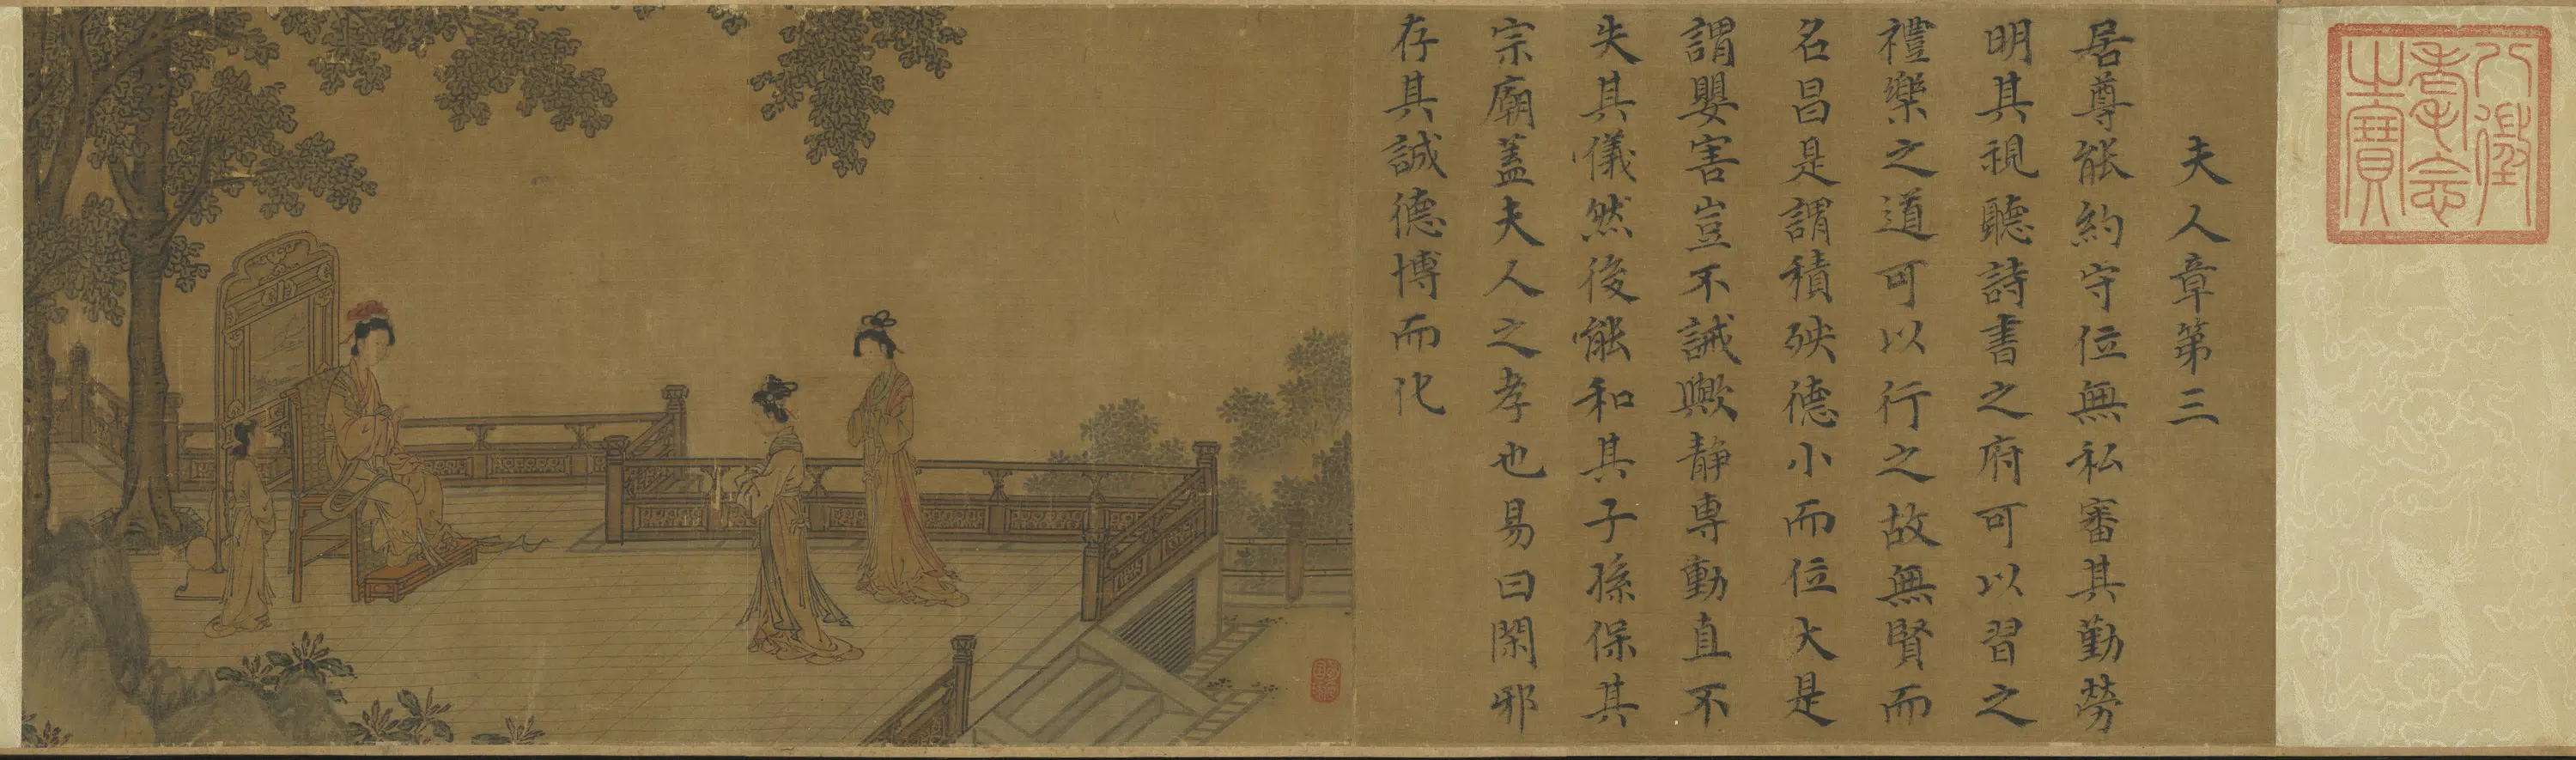 八徵
耄念
之寶
夫人章第三
居尊能約守位無私審其勤勞
明其視聽詩書之府可以習之
禮樂之道可以行之故無賢而
名昌是謂積殃德小而位大是
謂嬰害豈不誡歟静專動直不
失其儀然後能和其子孫保其
宗廟蓋夫人之孝也易曰閑邪
存其誠德博而化